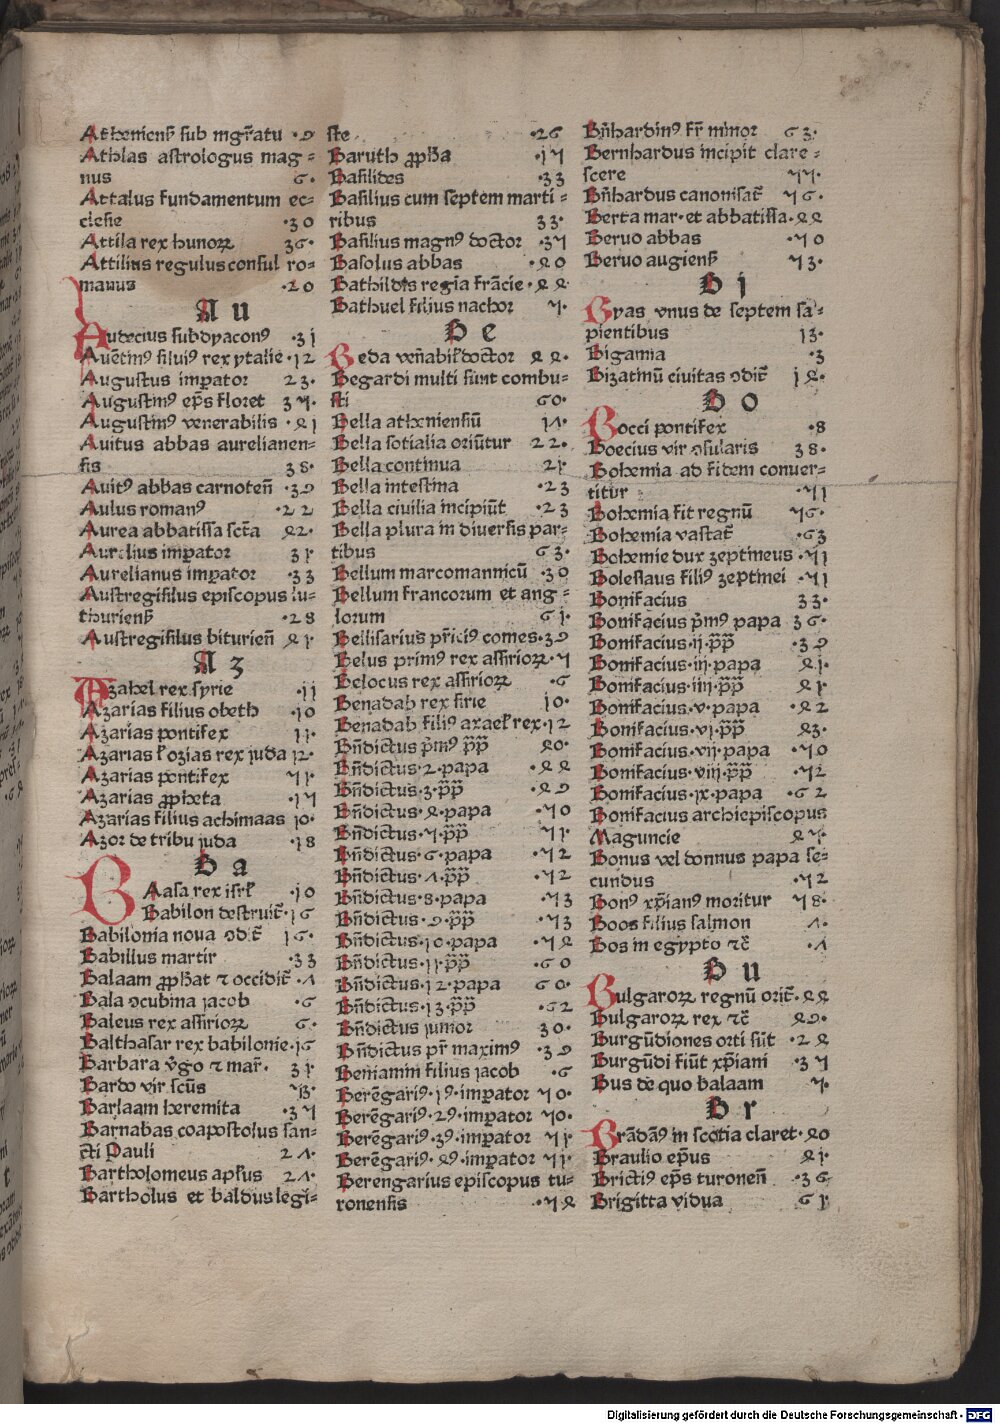 Atheniens̄ sub mgr̄atu ·9
Athlas astrologus mag=
nus 6·
Attalus fundamentum ec=
clesie ·30
Attila rex hunoꝝ 36·
Attilius regulus consul ro=
manus ·20
Au
Audecius subdyaconꝰ ·31
Auētinꝰ siluiꝰ rex ytalie ·12
Augustus imperator 23·
Augustinꝰ ep̄s floret 35·
Augustinꝰ venerabilis ·41
Avitus abbas aurelianen=
sis 38·
Avitꝰ abbas carnoten̄ ·39
Aulus romanꝰ ·22
Aurea abbatissa sct̄a 42·
Aurelius imꝑator 31
Aurelianus imꝑator ·33
Austregisilus episcopus lu=
thuriens̄ ·28
Austregisilus biturien̄ 41
Az
Azahel rex syrie ·11
Azarias filius obeth ·10
Azarias pontifex 11·
Azarias ł ozias rex juda 12·
Azarias pontifex 51·
Azarias ꝓpheta ·15
Azarias filius achimaas 10·
Azor de tribu juda ·18
Ba
Baasa rex isrł ·10
Babilon destruit̄ ·16
Babilonia nova ꝯdit̄ 16·
Babillus martir ·33
Balaam ꝓphat ⁊ occidit̄ ·7
Bala ꝯcubina jacob ·6
Baleus rex assirioꝝ 6·
Balthasar rex babilonie ·16
Barbara v̄go ⁊ mar̄· 31
Bardo vir scūs 53·
Barlaam heremita ·35
Barnabas coapostolus san=
cti Pauli 27·
Bartholomeus apłus 27·
Bartholus et baldus legi=
ste ·26
Baruth ꝓpħa ·15
Basilides ·33
Basilius cum septem marti=
ribus 33·
Basilius magnꝰ doctor ·35
Basolus abbas ·40
Bathildis regia frācie ·44
Bathuel filius nachor 5·
Be
Beda vēnabił doctor 44·
Begardi multi sunt combu=
sti 60·
Bella atheniensiū 17·
Bella sotialia oriūtur 22·
Bella continua 21
Bella intestina ·23
Bella civilia incipiūt ·23
Bella plura in diversis par=
tibus 63·
Bellum marcomannicū ·30
Bellum francorum et ang=
lorum 61·
Bellisarius pr̄iciꝰ comes·39
Belus primꝰ rex assirioꝝ·5
Belocus rex assirioꝝ ·6
Benadab rex sirie 10·
Benadab filiꝰ axael rex·12
Bn̄dictus p̄mꝰ pp̄ 40·
Bn̄dictus·2·papa ·44
Bn̄dictus·3·pp̄ ·49
Bn̄dictus·4·papa ·50
Bn̄dictus·5·pp̄ 51·
Bn̄dictus·6·papa ·52
Bn̄dictus·7·pp̄ ·52
Bn̄dictus·8·papa ·53
Bn̄dictus·9·pp̄ ·53
Bn̄dictus·10·papa ·54
Bn̄dictus·11·pp̄ ·60
Bn̄dictus·12·papa 60·
Bn̄dictus·13·pp̄ ·62
Bn̄dictus junior 30·
Bn̄dictus pr̄ maximꝰ ·39
Beniamin filius jacob ·6
Berēgariꝰ·1ꝰ·imꝑator 50·
Berēgariꝰ·2ꝰ·imꝑator 50·
Berēgariꝰ·3ꝰ·imꝑator 51
Berēgariꝰ·4ꝰ·imꝑator 51·
Berengarius episcopus tu=
ronensis ·54
Bn̄hardinꝰ fr̄ minor 63·
Bernhardus incipit clare=
scere 55·
Bn̄hardus canonisat̄ 56·
Berta mar·et abbatissa·44
Beruo abbas ·50
Beruo augiens̄ 53·
Bi
Byas vnus de septem sa=
pientibus 13·
Bigamia ·3
Bizatinū civitas ꝯdit̄ 14·
Bo
Bocci pontifex ·8
Boecius vir ꝯsularis 38·
Bohemia ad fidem conver=
titur ·51
Bohemia fit regnū 56·
Bohemia vastat̄ ·63
Bohemie dux zeptineus ·51
Boleslaus filiꝰ zeptinei ·51
Bonifacius 33·
Bonifacius p̄mꝰ papa 36·
Bonifacius·ii·pp̄ ·39
Bonifacius·iii·papa 41·
Bonifacius·iiii·pp̄ 41
Bonifacius·v·papa ·42
Bonifacius·vi·pp̄ 43·
Bonifacius·vii·papa ·50
Bonifacius·viii·pp̄ ·52
Bonifacius·ix·papa ·62
Bonifacius archiepiscopus
Maguncie 45·
Bonus vel donnus papa se=
cundus ·52
Bonꝰ xp̄ianꝰ moritur 58·
Boos filius salmon 7·
Bos in egypto ⁊c̄ ·7
Bu
Bulgaroꝝ regnū orit̄·44
Bulgaroꝝ rex ⁊c̄ 49·
Burgūdiones orti sūt ·24
Burgūdi fiūt xp̄iani ·35
Bus de quo balaam 5·
Br
Brādāꝰ in scotia claret·40
Braulio ep̄us 41·
Brictiꝰ ep̄s turonen̄ ·36
Brigitta vidua 61
Digitalisierung gefördert durch die Deutsche Forschungsgemeinschaft - DFG